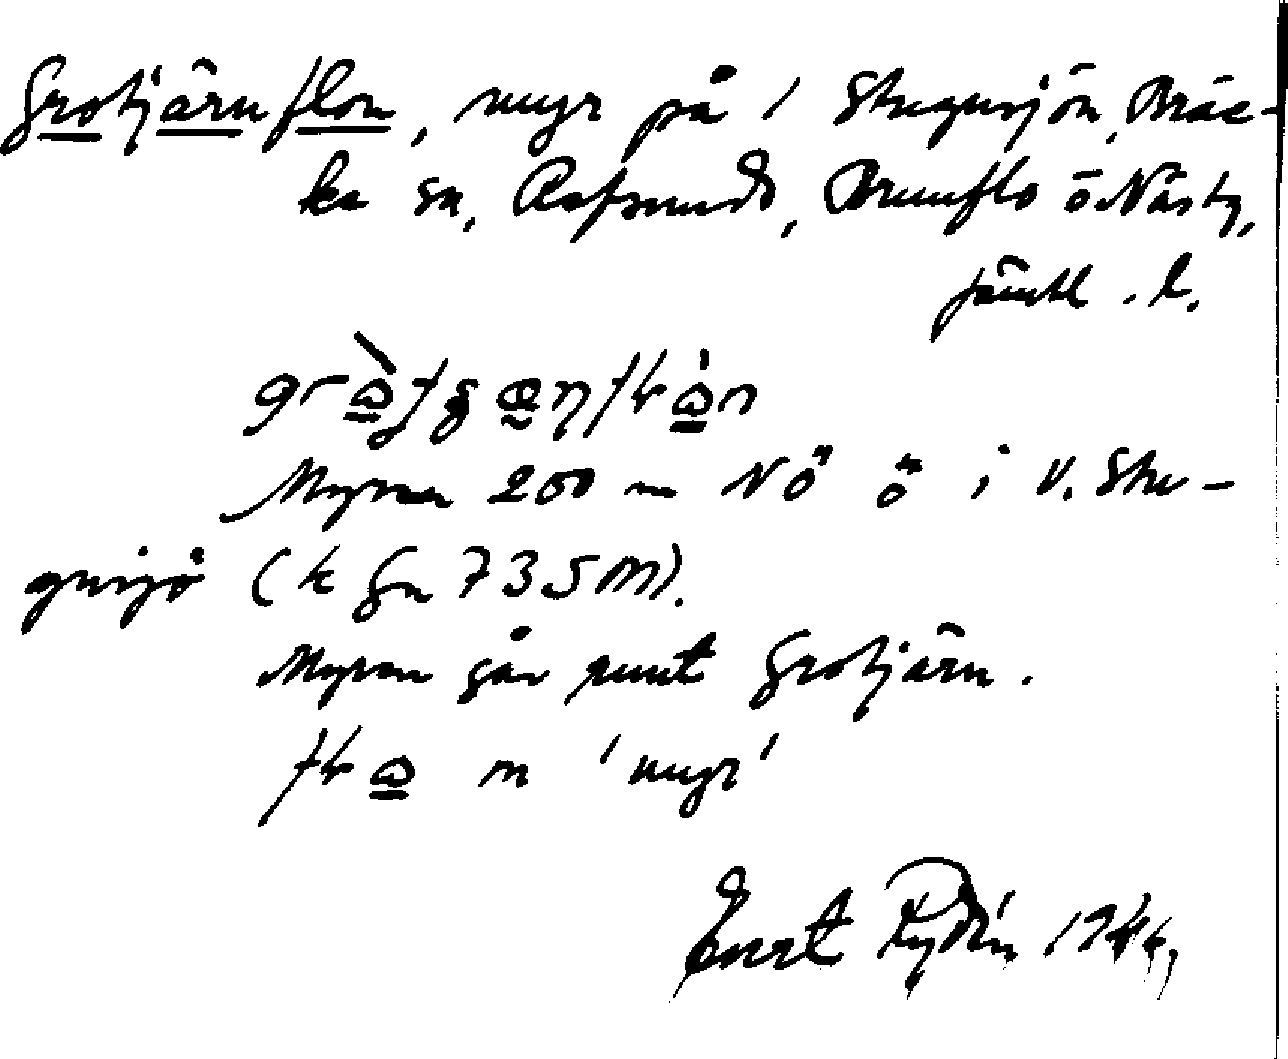 Grotjärnflon, myr på 1 Stugusjön, Bräc-
ke sn, Refsunds, Brunflo o Näs tg,
Jämtl. l.
Myren 200 m NÖ ö i V. Stu-
gusjö (k Gn 735 M).
Myren går runt Grotjärn.
m 'myr'
Evert Rydén 1944,